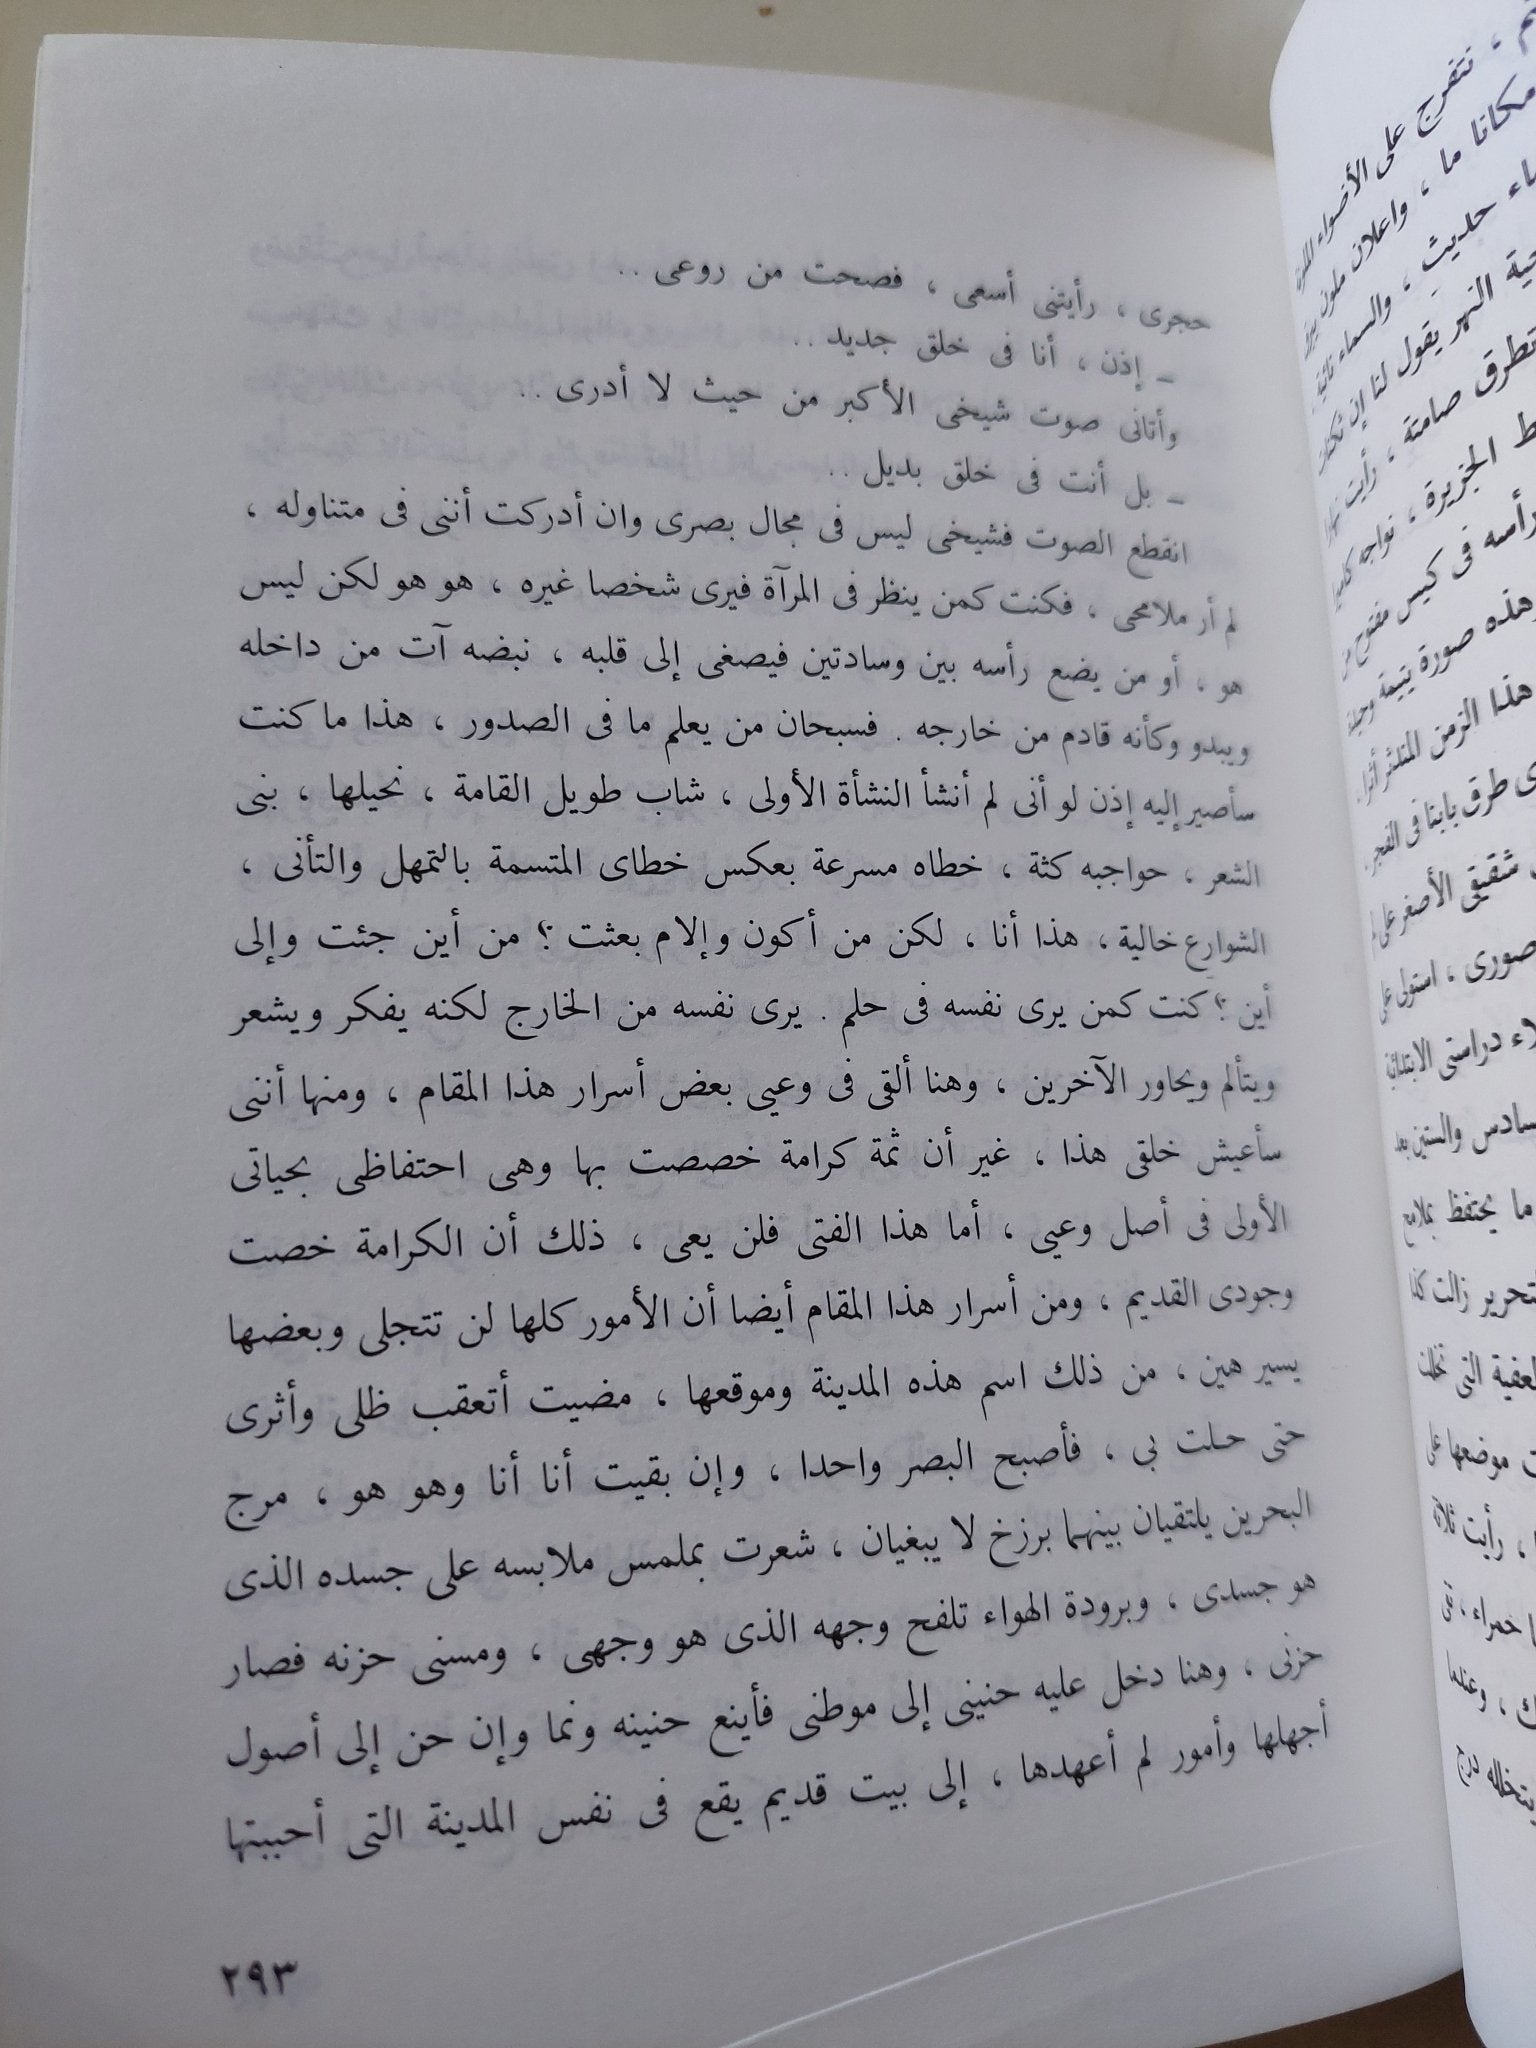 حجرى ، رأيتنى أسعى ، فصحت من روعى ..
– إذن ، أنا فى خلق جديد ..
وأتانى صوت شيخى الأكبر من حيث لا أدرى ..
– بل أنت فى خلق بديل ..
انقطع الصوت فشيخى ليس فى مجال بصرى وان أدركت أننى فى متناوله ،
لم أر ملامحى ، فكنت كمن ينظر فى المرآة فيرى شخصا غيره ، هو هو لكن ليس
هو ، أو من يضع رأسه بين وسادتين فيصغى إلى قلبه ، نبضه آت من داخله
ويبدو وكأنه قادم من خارجه . فسبحان من يعلم ما فى الصدور ، هذا ما كنت
سأصير إليه إذن لو أنى لم أنشأ النشأة الأولى ، شاب طويل القامة ، نحيلها ، بنى
الشعر ، حواجبه كثة ، خطاه مسرعة بعكس خطاى المتسمة بالتمهل والتأنى ،
الشوارع خالية ، هذا أنا ، لكن من أكون وإلام بعثت ؟ من أين جئت وإلى
أين ؟ كنت كمن يرى نفسه فى حلم . يرى نفسه من الخارج لكنه يفكر ويشعر
ويتألم ويحاور الآخرين ، وهنا ألقى فى وعيى بعض أسرار هذا المقام ، ومنها أننى
سأعيش خلقى هذا ، غير أن ثمة كرامة خصصت بها وهى احتفاظى بحياتى
الأولى فى أصل وعيى ، أما هذا الفتى فلن يعى ، ذلك أن الكرامة خصت
وجودى القديم ، ومن أسرار هذا المقام أيضا أن الأمور كلها لن تتجلى وبعضها
يسير هين ، من ذلك اسم هذه المدينة وموقعها ، مضيت أتعقب ظلى وأثرى
حتى حلت بى ، فأصبح البصر واحدا ، وإن بقيت أنا أنا وهو هو ، مرج
البحرين يلتقيان بينهما برزخ لا يبغيان ، شعرت بملمس ملابسه على جسده الذى
هو جسدى ، وبرودة الهواء تلفح وجهه الذى هو وجهى ، ومسنى حزنه فصار
حزنى ، وهنا دخل عليه حنينى إلى موطنى فأينع حنينه ونما وإن حن إلى أصول
أجهلها وأمور لم أعهدها ، إلى بيت قديم يقع فى نفس المدينة التى أحببتها
٢٩٣
، نتفرج على الأضواء
مكانا ما ، واعلان ملون
حديث ، والسماء نائية
النهر يقول لنا إن
تطرق صامتة ، رأيت نهارا
الجزيرة ، نواجه
رأسه فى كيس مفتوح من
وهذه صورة يتيمة
هذا الزمن المندثر أثرا
طرق بابنا فى الفجر
شقيقى الأصغر على
صورى ، استولى على
دراستى الابتدائية
السادس والستين بعد
ما يحتفظ بملامح
التحرير زالت
التى
موضعها على
، رأيت ثلاثة
حمراء ،
، وعندما
يتخلله درج